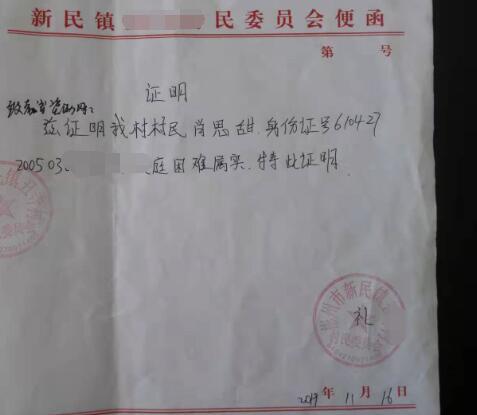 新民镇 民委员会便函
第 号
证明
兹证明我村村民肖思甜,身份证号610427
200503 庭困难属实,特此证明
彬州市新民镇
礼
2019年11月16日